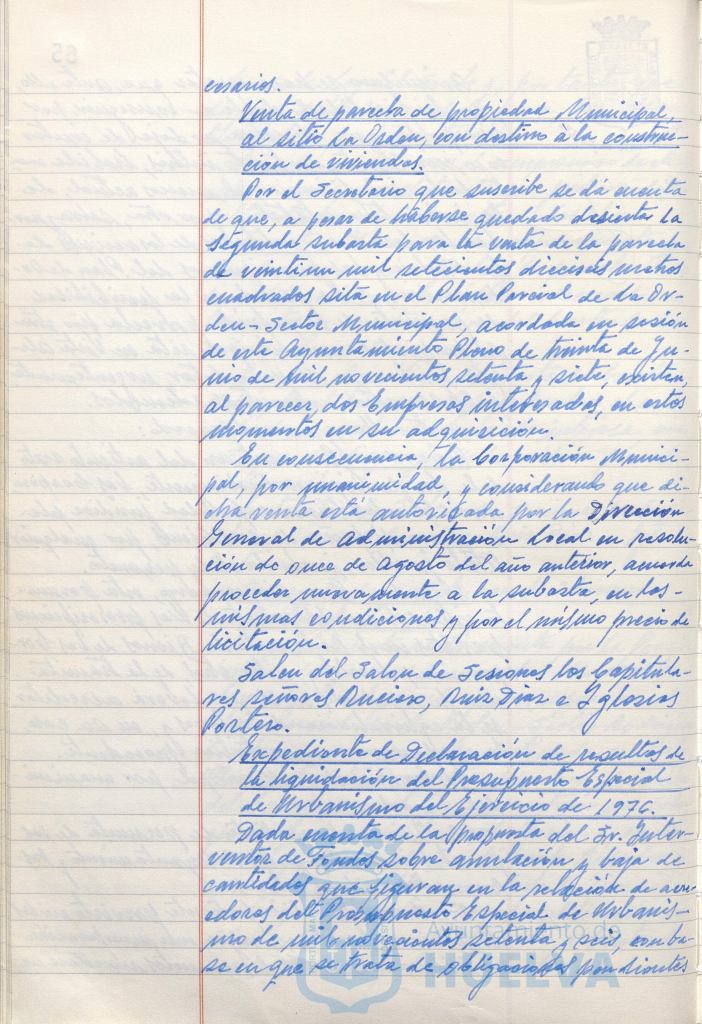 cesarios.
Venta de parcela de propiedad Municipal,
al sitio La Orden, con destino à la construc-
ción de viviendas.
Por el Secretario que suscribe se dá cuenta
de que, a pesar de haberse quedado desierta la
segunda subasta para la venta de la parcela
de veintiun mil setecientos dieciseis metros
cuadrados sita en el Plan Parcial de La Or-
den-Sector Municipal, acordada en sesión
de este Ayuntamiento Pleno de treinta de Ju-
nio de mil novecientos setenta y siete, existen,
al parecer, dos Empresas interesadas, en estos
momentos en su adquisición.
En consecuencia, la Corporación Munici-
pal, por unanimidad, y considerando que di-
cha venta está autorizada por la Dirección
General de Administración Local en resolu-
ción de once de Agosto del año anterior, acuerda
proceder nuevamente a la subasta, en las
mismas condiciones y por el mismo precio de
licitación.
Salen del Salon de Sesiones los Capitula-
res señores Ruciero, Ruiz Diaz e Yglesias
Portero.
Expediente de Declaración de resultas de
la liquidación del Presupuesto Especial
de Urbanismo del Ejercicio de 1976.
Dada cuenta de la propuesta del Sr. Inter-
ventor de Fondos sobre anulación y baja de
cantidades que figuran en la relación de acre-
edores del Presupuesto Especial de Urbanis-
mo de mil novecientos setenta y seis, en ba-
se en que se trata de obligaciones pendientes
Ayuntamiento de
HUELVA
65